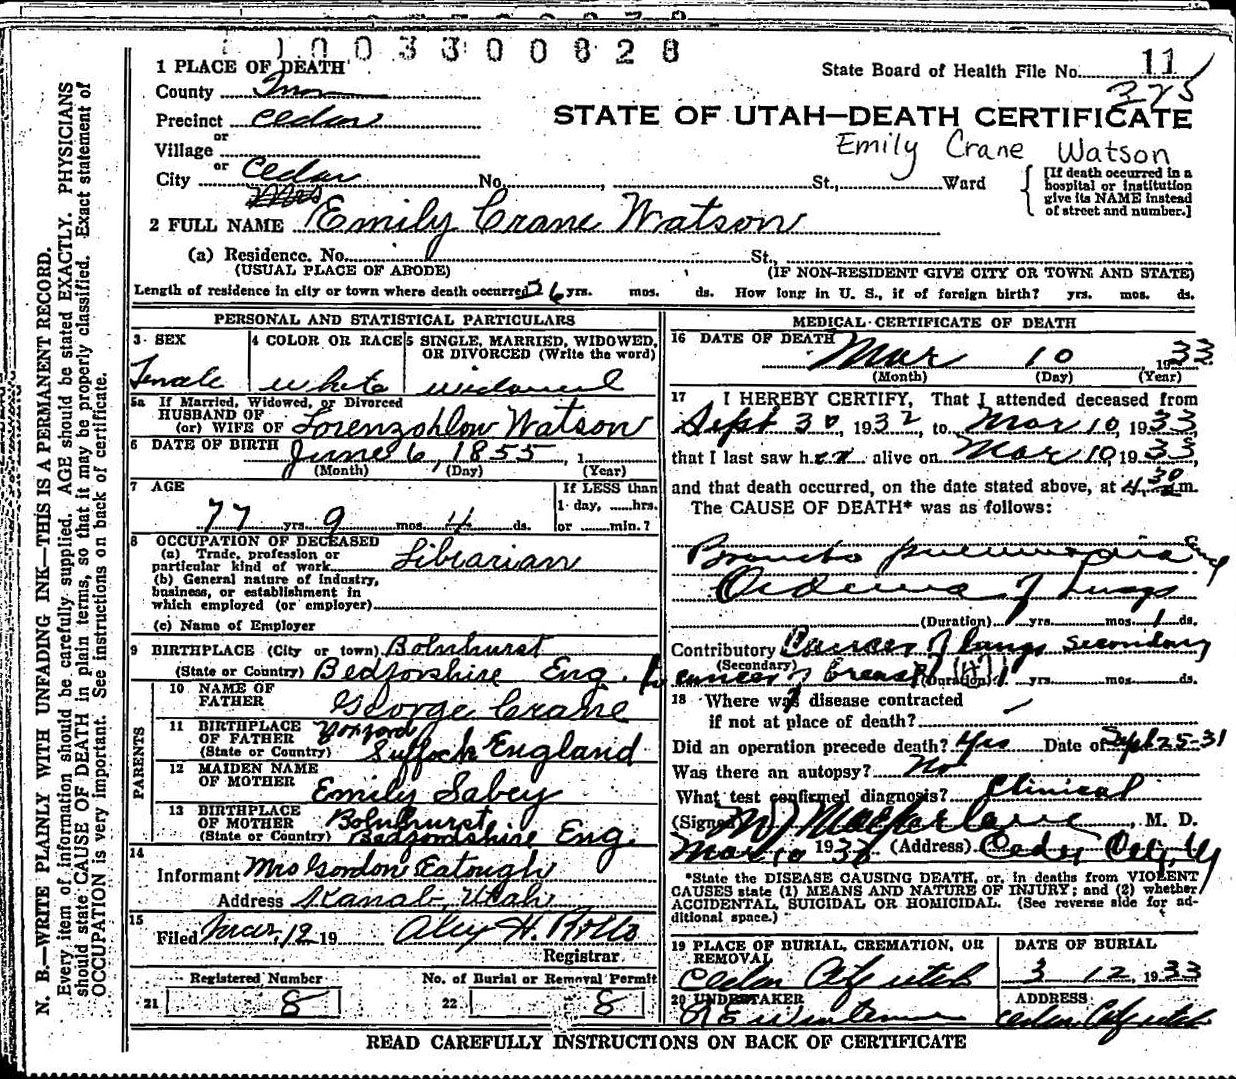 1003300828
1 PLACE OF DEATH
State Board of Health File No. 11
County Iron
375
Precinct Cedar
STATE OF UTAH—DEATH CERTIFICATE
or
Village
Emily Crane Watson
or
City Cedar No. , St., Ward
[If death occurred in a hospital or institution give its NAME instead of street and number.]
Mrs
2 FULL NAME Emily Crane Watson
(a) Residence. No. St.,
(USUAL PLACE OF ABODE) (IF NON-RESIDENT GIVE CITY OR TOWN AND STATE)
Length of residence in city or town where death occurred 26 yrs. mos. ds. How long in U. S., if of foreign birth? yrs. mos. ds.
PERSONAL AND STATISTICAL PARTICULARS
3 SEX
Female
4 COLOR OR RACE
white
5 SINGLE, MARRIED, WIDOWED,
OR DIVORCED (Write the word)
widowed
5a If Married, Widowed, or Divorced
HUSBAND OF
(or) WIFE OF Lorenzohlow Watson
6 DATE OF BIRTH June 6, 1855, 1
(Month) (Day) (Year)
7 AGE
77 yrs. 9 mos. 4 ds.
If LESS than
1 day, hrs.
or min.?
8 OCCUPATION OF DECEASED
(a) Trade, profession or
particular kind of work Librarian
(b) General nature of industry,
business, or establishment in
which employed (or employer)
(c) Name of Employer
9 BIRTHPLACE (City or town) Bolnhurst
(State or Country) Bedforshire Eng.
PARENTS
10 NAME OF
FATHER George Crane
11 BIRTHPLACE
OF FATHER
(State or Country) Suffock England
12 MAIDEN NAME
OF MOTHER Emily Sabey
13 BIRTHPLACE
OF MOTHER Bolnhurst
(State or Country) Bedfordshire Eng.
14
Informant Mrs Gordon Eatough
Address Kanab, Utah
15
Filed Mar, 12 19 Aley H. Rollo
Registrar
Registered Number
21 8
No. of Burial or Removal Permit
22 8
MEDICAL CERTIFICATE OF DEATH
16 DATE OF DEATH
Mar 10 1933
(Month) (Day) (Year)
17 I HEREBY CERTIFY, That I attended deceased from
Sept 30, 1932, to Mar 10, 1933
that I last saw her alive on Mar 10, 1933,
and that death occurred, on the date stated above, at 4.30 m.
The CAUSE OF DEATH* was as follows:
Broncho pneumonia and
Oedema of Lungs
(Duration) yrs. mos. 1 ds.
Contributory Cancer of lungs secondary
(Secondary)
to cancer of breast (47)
(Duration) yrs. mos. ds.
18 Where was disease contracted
if not at place of death?
Did an operation precede death? Yes Date of Sept 25-31
Was there an autopsy? No
What test confirmed diagnosis? Clinical
(Signed) M J Macfarlane, M. D.
Mar 10 1933 (Address) Cedar City, Ut
*State the DISEASE CAUSING DEATH, or, in deaths from VIOLENT
CAUSES state (1) MEANS AND NATURE OF INJURY; and (2) whether
ACCIDENTAL, SUICIDAL OR HOMICIDAL. (See reverse side for ad-
ditional space.)
19 PLACE OF BURIAL, CREMATION, OR
REMOVAL
Cedar City Utah
DATE OF BURIAL
3 12, 1933
20 UNDERTAKER
ADDRESS
Cedar City Utah
READ CAREFULLY INSTRUCTIONS ON BACK OF CERTIFICATE
N. B.—WRITE PLAINLY WITH UNFADING INK—THIS IS A PERMANENT RECORD.
Every item of information should be carefully supplied. AGE should be stated EXACTLY. PHYSICIANS
should state CAUSE OF DEATH in plain terms, so that it may be properly classified. Exact statement of
OCCUPATION is very important. See instructions on back of certificate.